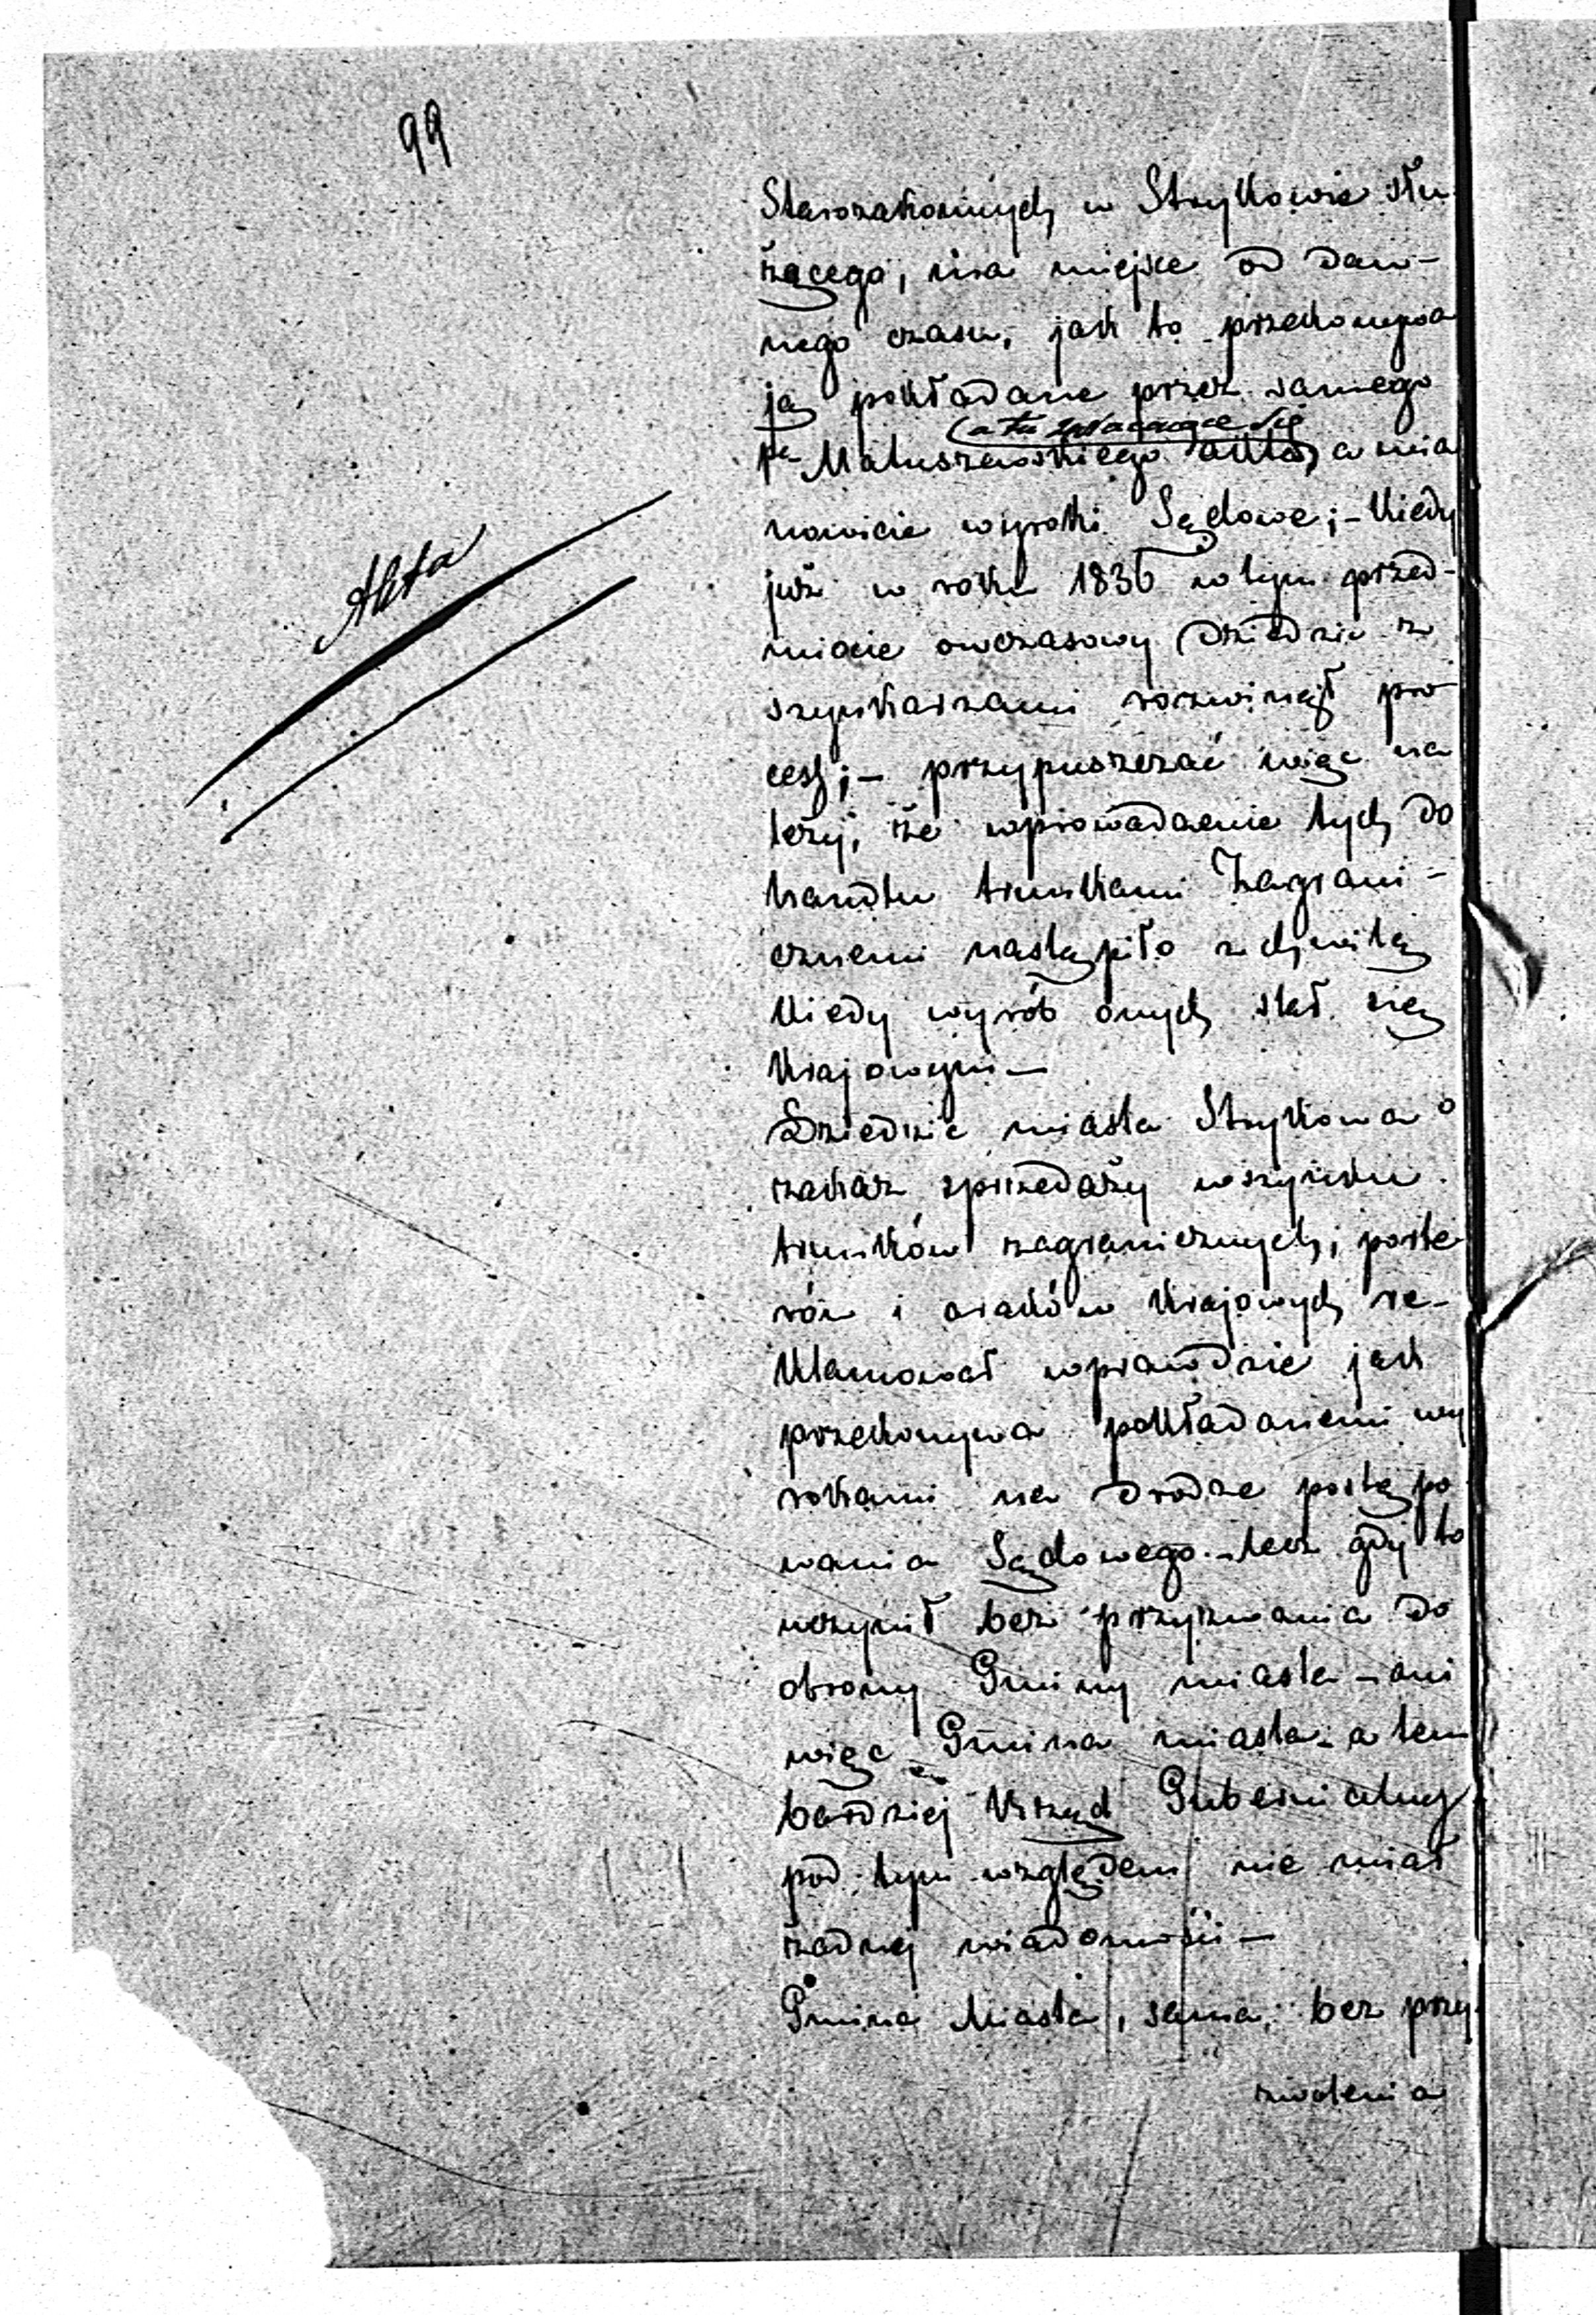 99
Starozakonnych w Strykowie słu
żącego, ma miejsce od daw-
nego czasu, jak to przekonywa
ją pokładane przez samego
(a tu zwracające się
pa Matuszewskiego akta, a mia
nowicie wyroki Sądowe; - kiedy
już w roku 1836 w tym przed-
miocie owczasowy Dziedzic z
szynkarzami rozwinął pro
cess; - przypuszczać więc na
leży, że wprowadzenie tych do
handlu trunkami Zagrani-
cznemi nastąpiło z chwilą
kiedy wyrób onych stał się
Krajowym -
Dziedzic miasta Strykowa o
zakaz sprzedaży wszynku
trunków zagranicznych, porte
rów i araków Krajowych re-
klamował wprawdzie jak
przekonywa pokładanemi wy
rokami na drodze postępo
wania Sądowego - lecz gdy to
uczynił bez przyzwania do
obrony Gminy miasta - ani
więc Gmina miasta - a tem
bardziej Urząd Gubernialny
pod tym względem nie miał
żadnej wiadomości -
Gmina Miasta, sama, bez przy
zwolenia
Akta